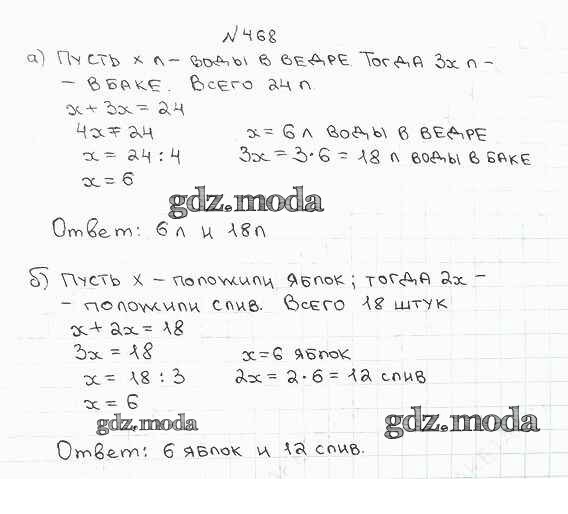 №468
а) Пусть x л - воды в ведре. Тогда 3x л -
- в баке. Всего 24 л.
x + 3x = 24
4x = 24 x = 6 л воды в ведре
x = 24 : 4 3x = 3·6 = 18 л воды в баке
x = 6
gdz.moda
Ответ: 6 л и 18 л
б) Пусть x - положили яблок; тогда 2x -
- положили слив. Всего 18 штук
x + 2x = 18
3x = 18 x = 6 яблок
x = 18 : 3 2x = 2·6 = 12 слив
x = 6
gdz.moda gdz.moda
Ответ: 6 яблок и 12 слив.